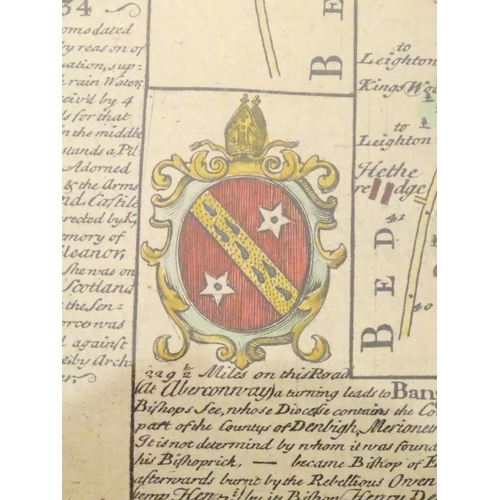 34
omodated
ry reason of
uation, sup-
d rain Water,
ceiv'd by 4
ls for that
n the middle
stands a Pil
Adorned
& the Arms
nd, Castile
erected by K,
emory of
leanor,
She was on
Scotland
t the Sen-
orce was
d against
ed by Arch-
er.
B E
to
Leighton
Kings Wo
to
Leighton
Hethe
re dge
41
B E D
40
229 ½ Miles on this Road
(at Aberconway) a turning leads to Ban
Bishops See, whose Diocese contains the Co
part of the Countys of Denbigh, Merionet
It is not determind by whom it was found
his Bishoprick, — became Bishop of E
afterwards burnt by the Rebellious Owen
temp Hen by its Bishop Henry De